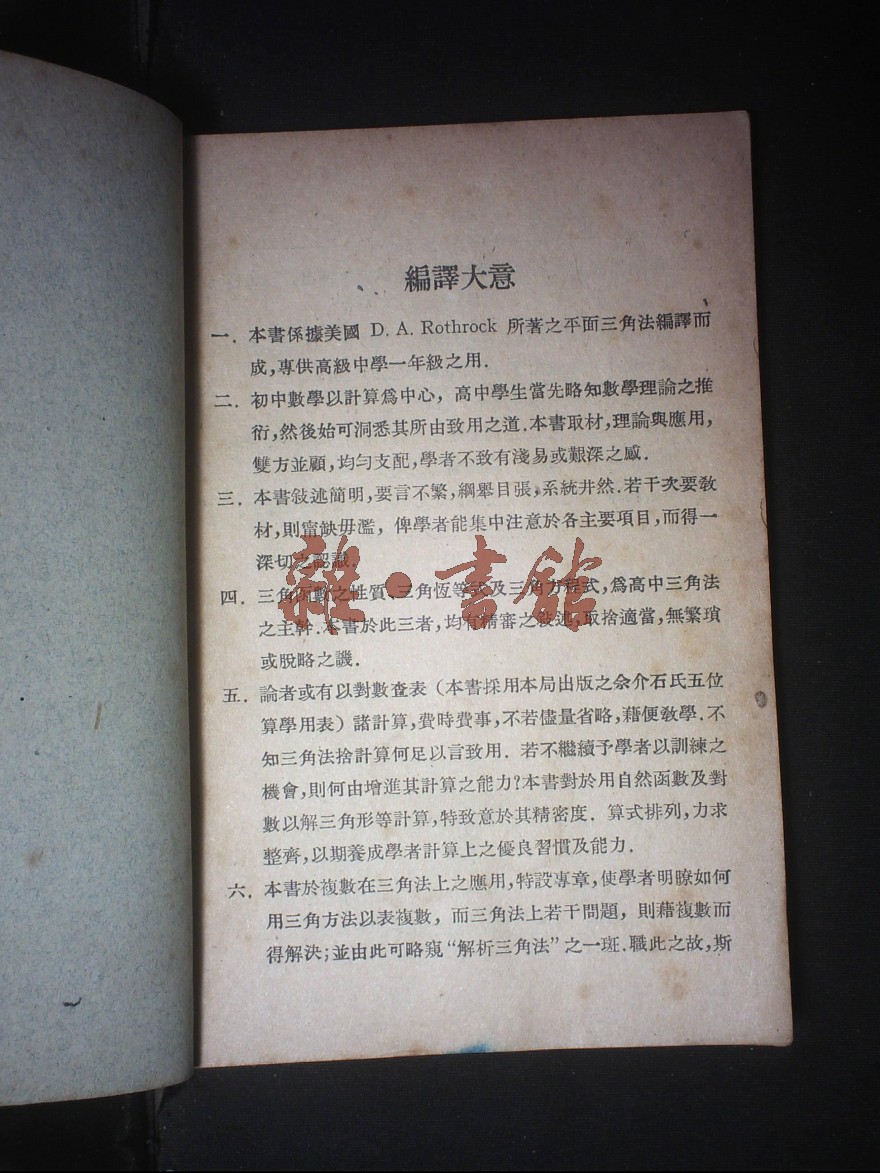 編譯大意
一．本書係據美國 D. A. Rothrock 所著之平面三角法編譯而
成，專供高級中學一年級之用．
二．初中數學以計算爲中心，高中學生當先略知數學理論之推
衍，然後始可洞悉其所由致用之道．本書取材，理論與應用，
雙方並顧，均勻支配，學者不致有淺易或艱深之感．
三．本書敍述簡明，要言不繁，綱舉目張，系統井然．若干次要敎
材，則甯缺毋濫，俾學者能集中注意於各主要項目，而得一
深切之認識．
四．三角函數之性質、三角恆等式及三角方程式，爲高中三角法
之主幹．本書於此三者，均有精審之敍述，取捨適當，無繁瑣
或脫略之譏．
五．論者或有以對數查表（本書採用本局出版之余介石氏五位
算學用表）諸計算，費時費事，不若儘量省略，藉便敎學．不
知三角法捨計算何足以言致用．若不繼續予學者以訓練之
機會，則何由增進其計算之能力？本書對於用自然函數及對
數以解三角形等計算，特致意於其精密度．算式排列，力求
整齊，以期養成學者計算上之優良習慣及能力．
六．本書於複數在三角法上之應用，特設專章，使學者明瞭如何
用三角方法以表複數，而三角法上若干問題，則藉複數而
得解決；並由此可略窺“解析三角法”之一斑．職此之故，斯
雜·書館